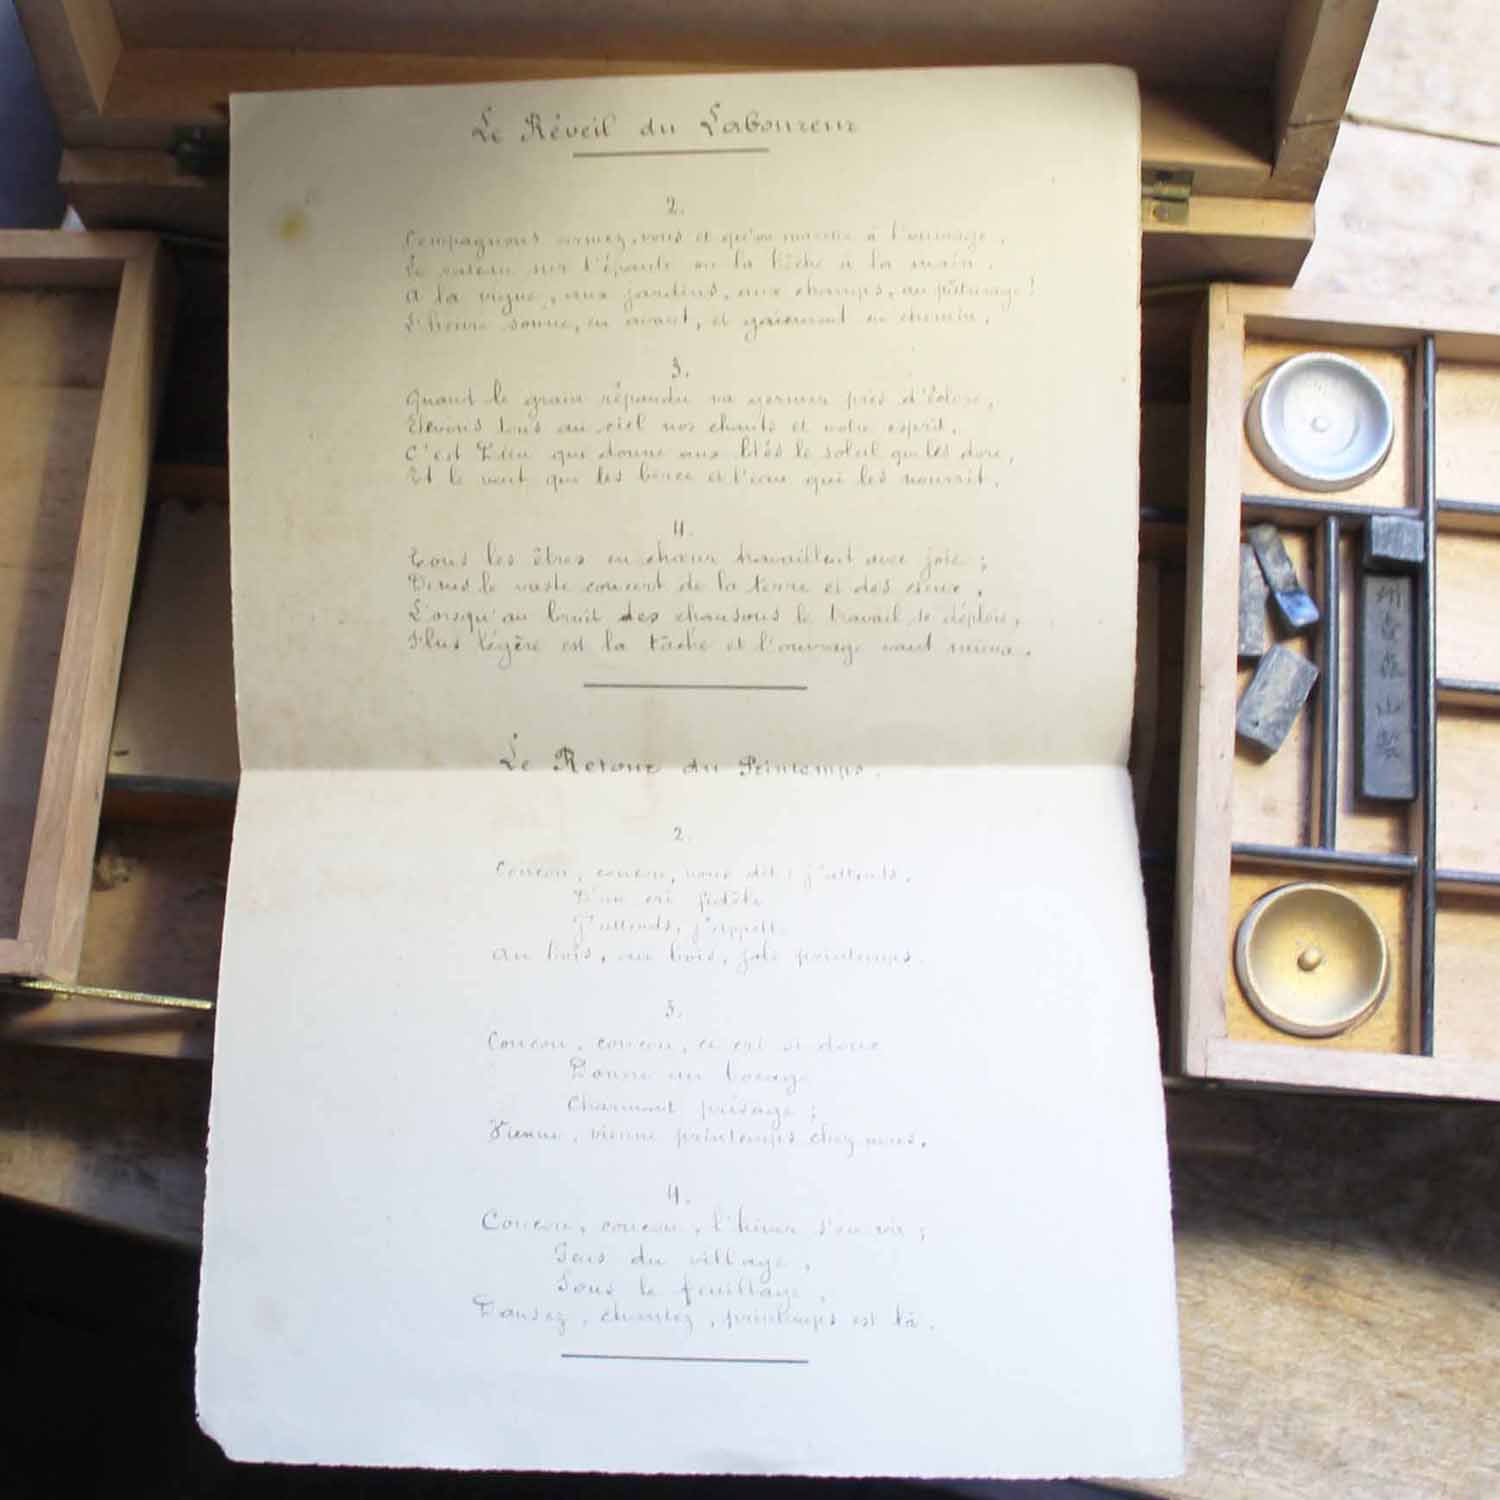 Le Réveil du Laboureur
2.
Compagnons armez-vous et qu'on marche à l'ouvrage,
Le rateau sur l'épaule ou la bêche à la main.
A la vigne, aux jardins, aux champs, au pâturage!
L'heure sonne, en avant, et gaiement en chemin.
3.
Quand le grain répandu va germer près d'éclore,
Elevons tous au ciel nos chants et notre esprit.
C'est Dieu qui donne aux blés le soleil qui les dore,
Et le vent qui les berce et l'eau qui les nourrit.
4.
Tous les êtres en chœur travaillent avec joie;
Dans le vaste concert de la terre et des cieux,
Lorsqu'au bruit des chansons le travail se déploie,
Plus légère est la tâche et l'ouvrage vaut mieux.
Le Retour du Printemps.
2.
Coucou, coucou, nous dit: j'attends,
D'un cri fidèle
J'attends, j'appelle
Au bois, au bois, joli printemps.
3.
Coucou, coucou, ce cri si doux
Donne au bocage
Charmant présage;
Vienne, vienne printemps chez nous.
4.
Coucou, coucou, l'hiver s'en va;
Gens du village,
Sous le feuillage,
Dansez, chantez, printemps est là.